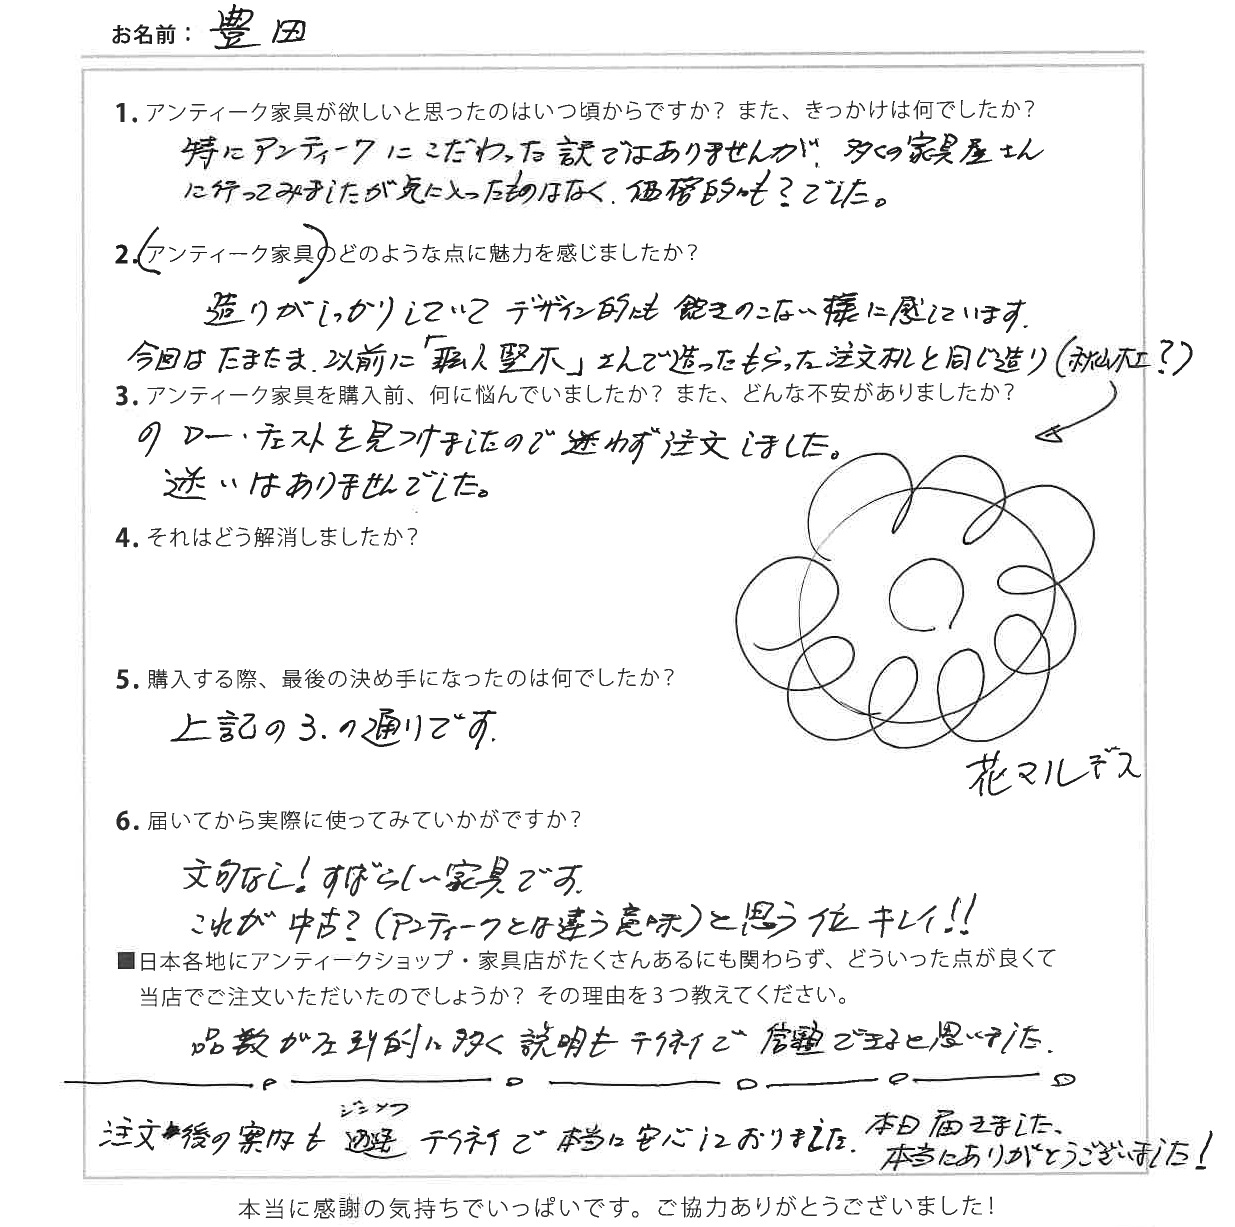 お名前： 豊田
1. アンティーク家具が欲しいと思ったのはいつ頃からですか？ また、きっかけは何でしたか？
特にアンティークにこだわった訳ではありませんが、多くの家具屋さん
に行ってみましたが気に入ったものはなく、価格的にも？でした。
2. (アンティーク家具)のどのような点に魅力を感じましたか？
造りがしっかりしていて デザイン的にも 飽きのこない様に感じています.
今回は たまたま、以前に「職人堅木」さんで造ってもらった注文札と同じ造り(秋山木工？)
3. アンティーク家具を購入前、何に悩んでいましたか？ また、どんな不安がありましたか？
の ロー・チェストを見つけましたので迷わず注文しました。
迷いはありませんでした。
4. それはどう解消しましたか？
5. 購入する際、最後の決め手になったのは何でしたか？
上記の3.の通りです.
花マルデス
6. 届いてから実際に使ってみていかがですか？
文句なし！すばらしい家具です.
これが中古？(アンティークとは違う意味)と思う位キレイ!!
■日本各地にアンティークショップ・家具店がたくさんあるにも関わらず、どういった点が良くて
当店でご注文いただいたのでしょうか？ その理由を３つ教えてください。
品数が圧倒的に多く 説明もテイネイで 信頼できると思いました.
ジンソク
注文後の案内も テイネイで 本当に安心しておりました. 本日届きました、
本当にありがとうございました！
本当に感謝の気持ちでいっぱいです。ご協力ありがとうございました！